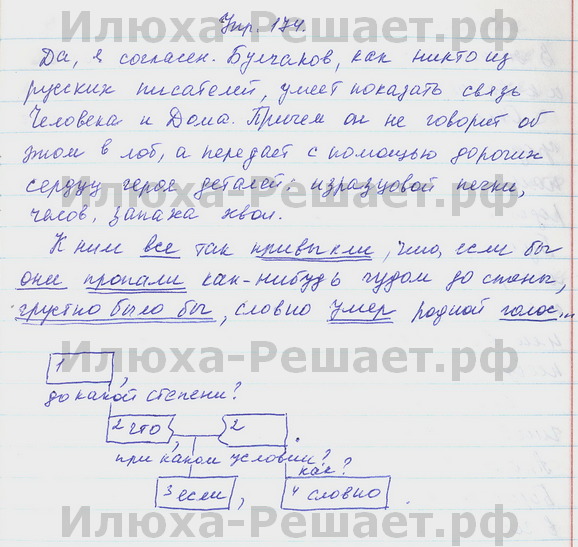 Илюха-Решает.рф
Упр. 174.
Да, я согласен. Булгаков, как никто из
русских писателей, умеет показать связь
Человека и Дома. Причем он не говорит об
этом в лоб, а передает с помощью дорогих
сердцу героя деталей: изразцовой печки,
часов, запаха хвои.
К ним все так привыкли, что, если бы
они пропали как-нибудь чудом со стены,
грустно было бы, словно умер родной голос...
Илюха-Решает.рф
1 ,
до какой степени?
2 что 2 .
при каком условии?
как?
3 если , 4 словно .
Илюха-Решает.рф
Илюха-Решает.рф